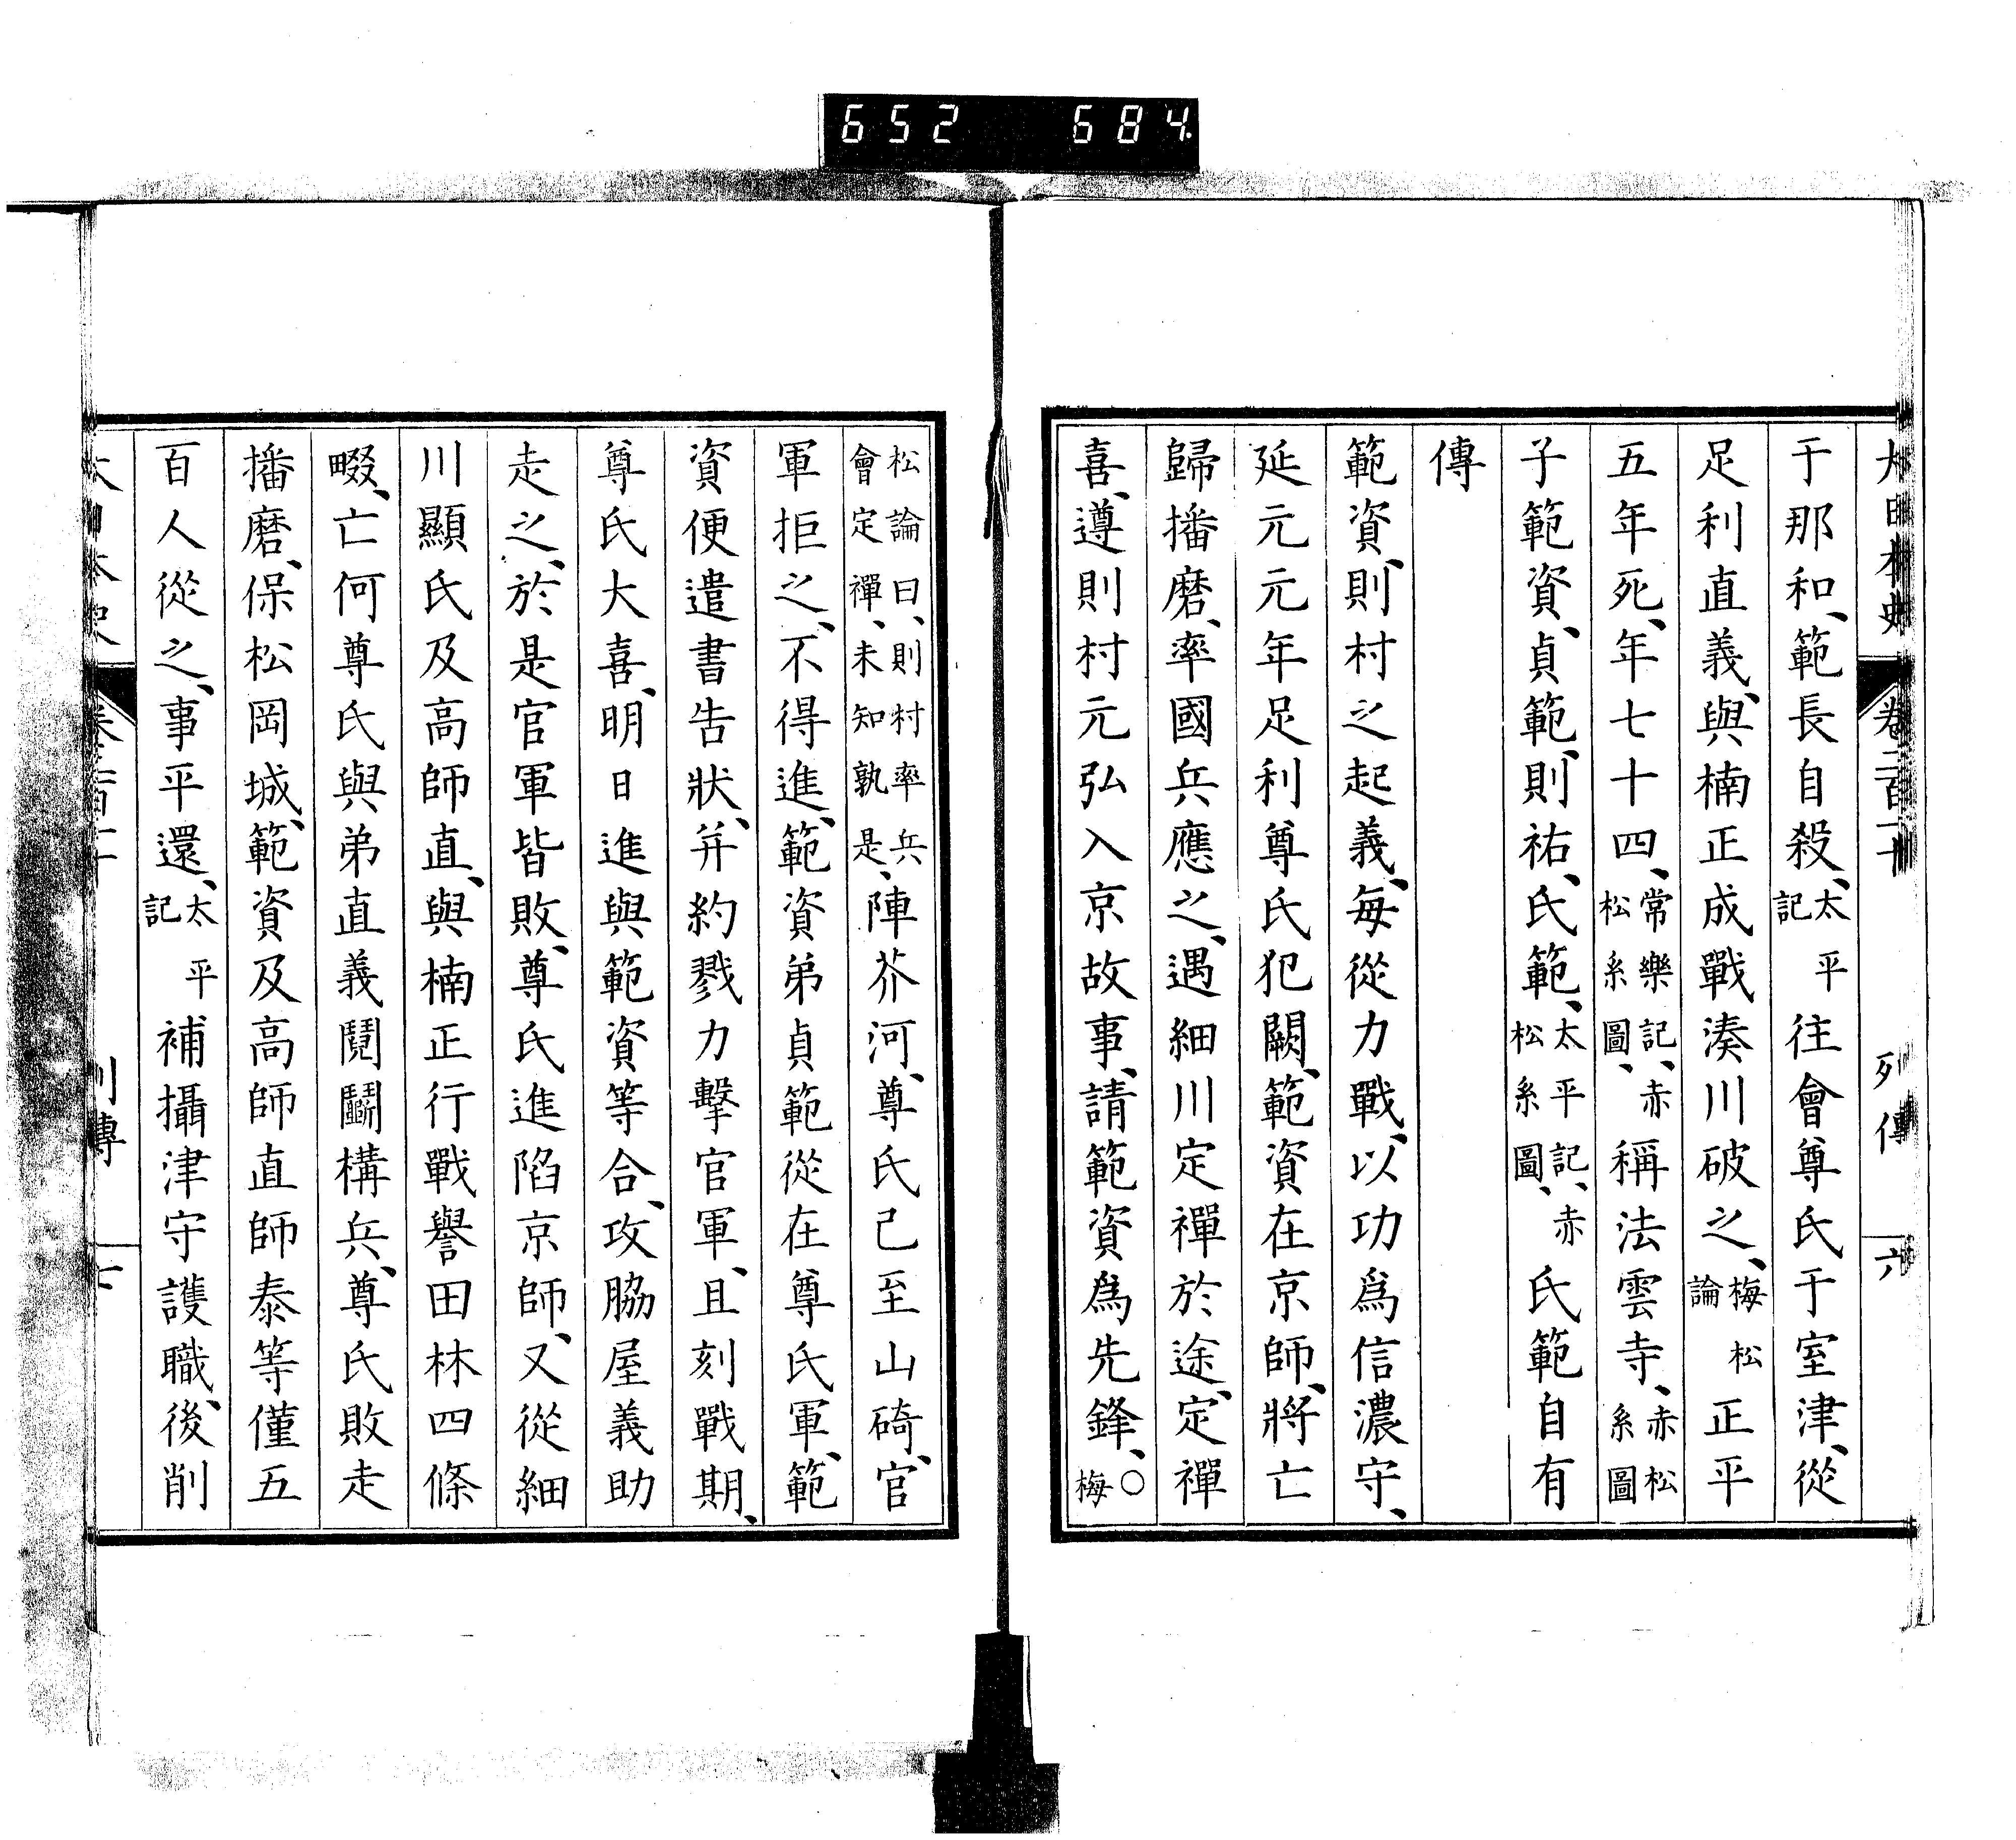 652 684
大日本史 卷二百二十 列傳 六
于那和、範長自殺、太平記 往會尊氏于室津、從
足利直義、與楠正成戰湊川破之、梅松論 正平
五年死、年七十四、常樂記、赤松系圖、 稱法雲寺、赤松系圖
子範資、貞範、則祐、氏範、太平記、赤松系圖、 氏範自有
傳
範資、則村之起義、每從力戰、以功爲信濃守、
延元元年足利尊氏犯闕、範資在京師、將亡
歸播磨、率國兵應之、遇細川定禪於途、定禪
喜、遵則村元弘入京故事、請範資爲先鋒、○梅
松論曰、則村率兵會定禪、未知孰是、陣芥河、尊氏已至山碕、官
軍拒之、不得進、範資弟貞範從在尊氏軍、範
資便遣書告狀、幷約戮力擊官軍、且刻戰期、
尊氏大喜、明日進與範資等合、攻脇屋義助
走之、於是官軍皆敗、尊氏進陷京師、又從細
川顯氏及高師直、與楠正行戰譽田林四條
畷、亡何尊氏與弟直義鬩鬭構兵、尊氏敗走
播磨、保松岡城、範資及高師直師泰等僅五
百人從之、事平還、太平記 補攝津守護職、後削
列傳